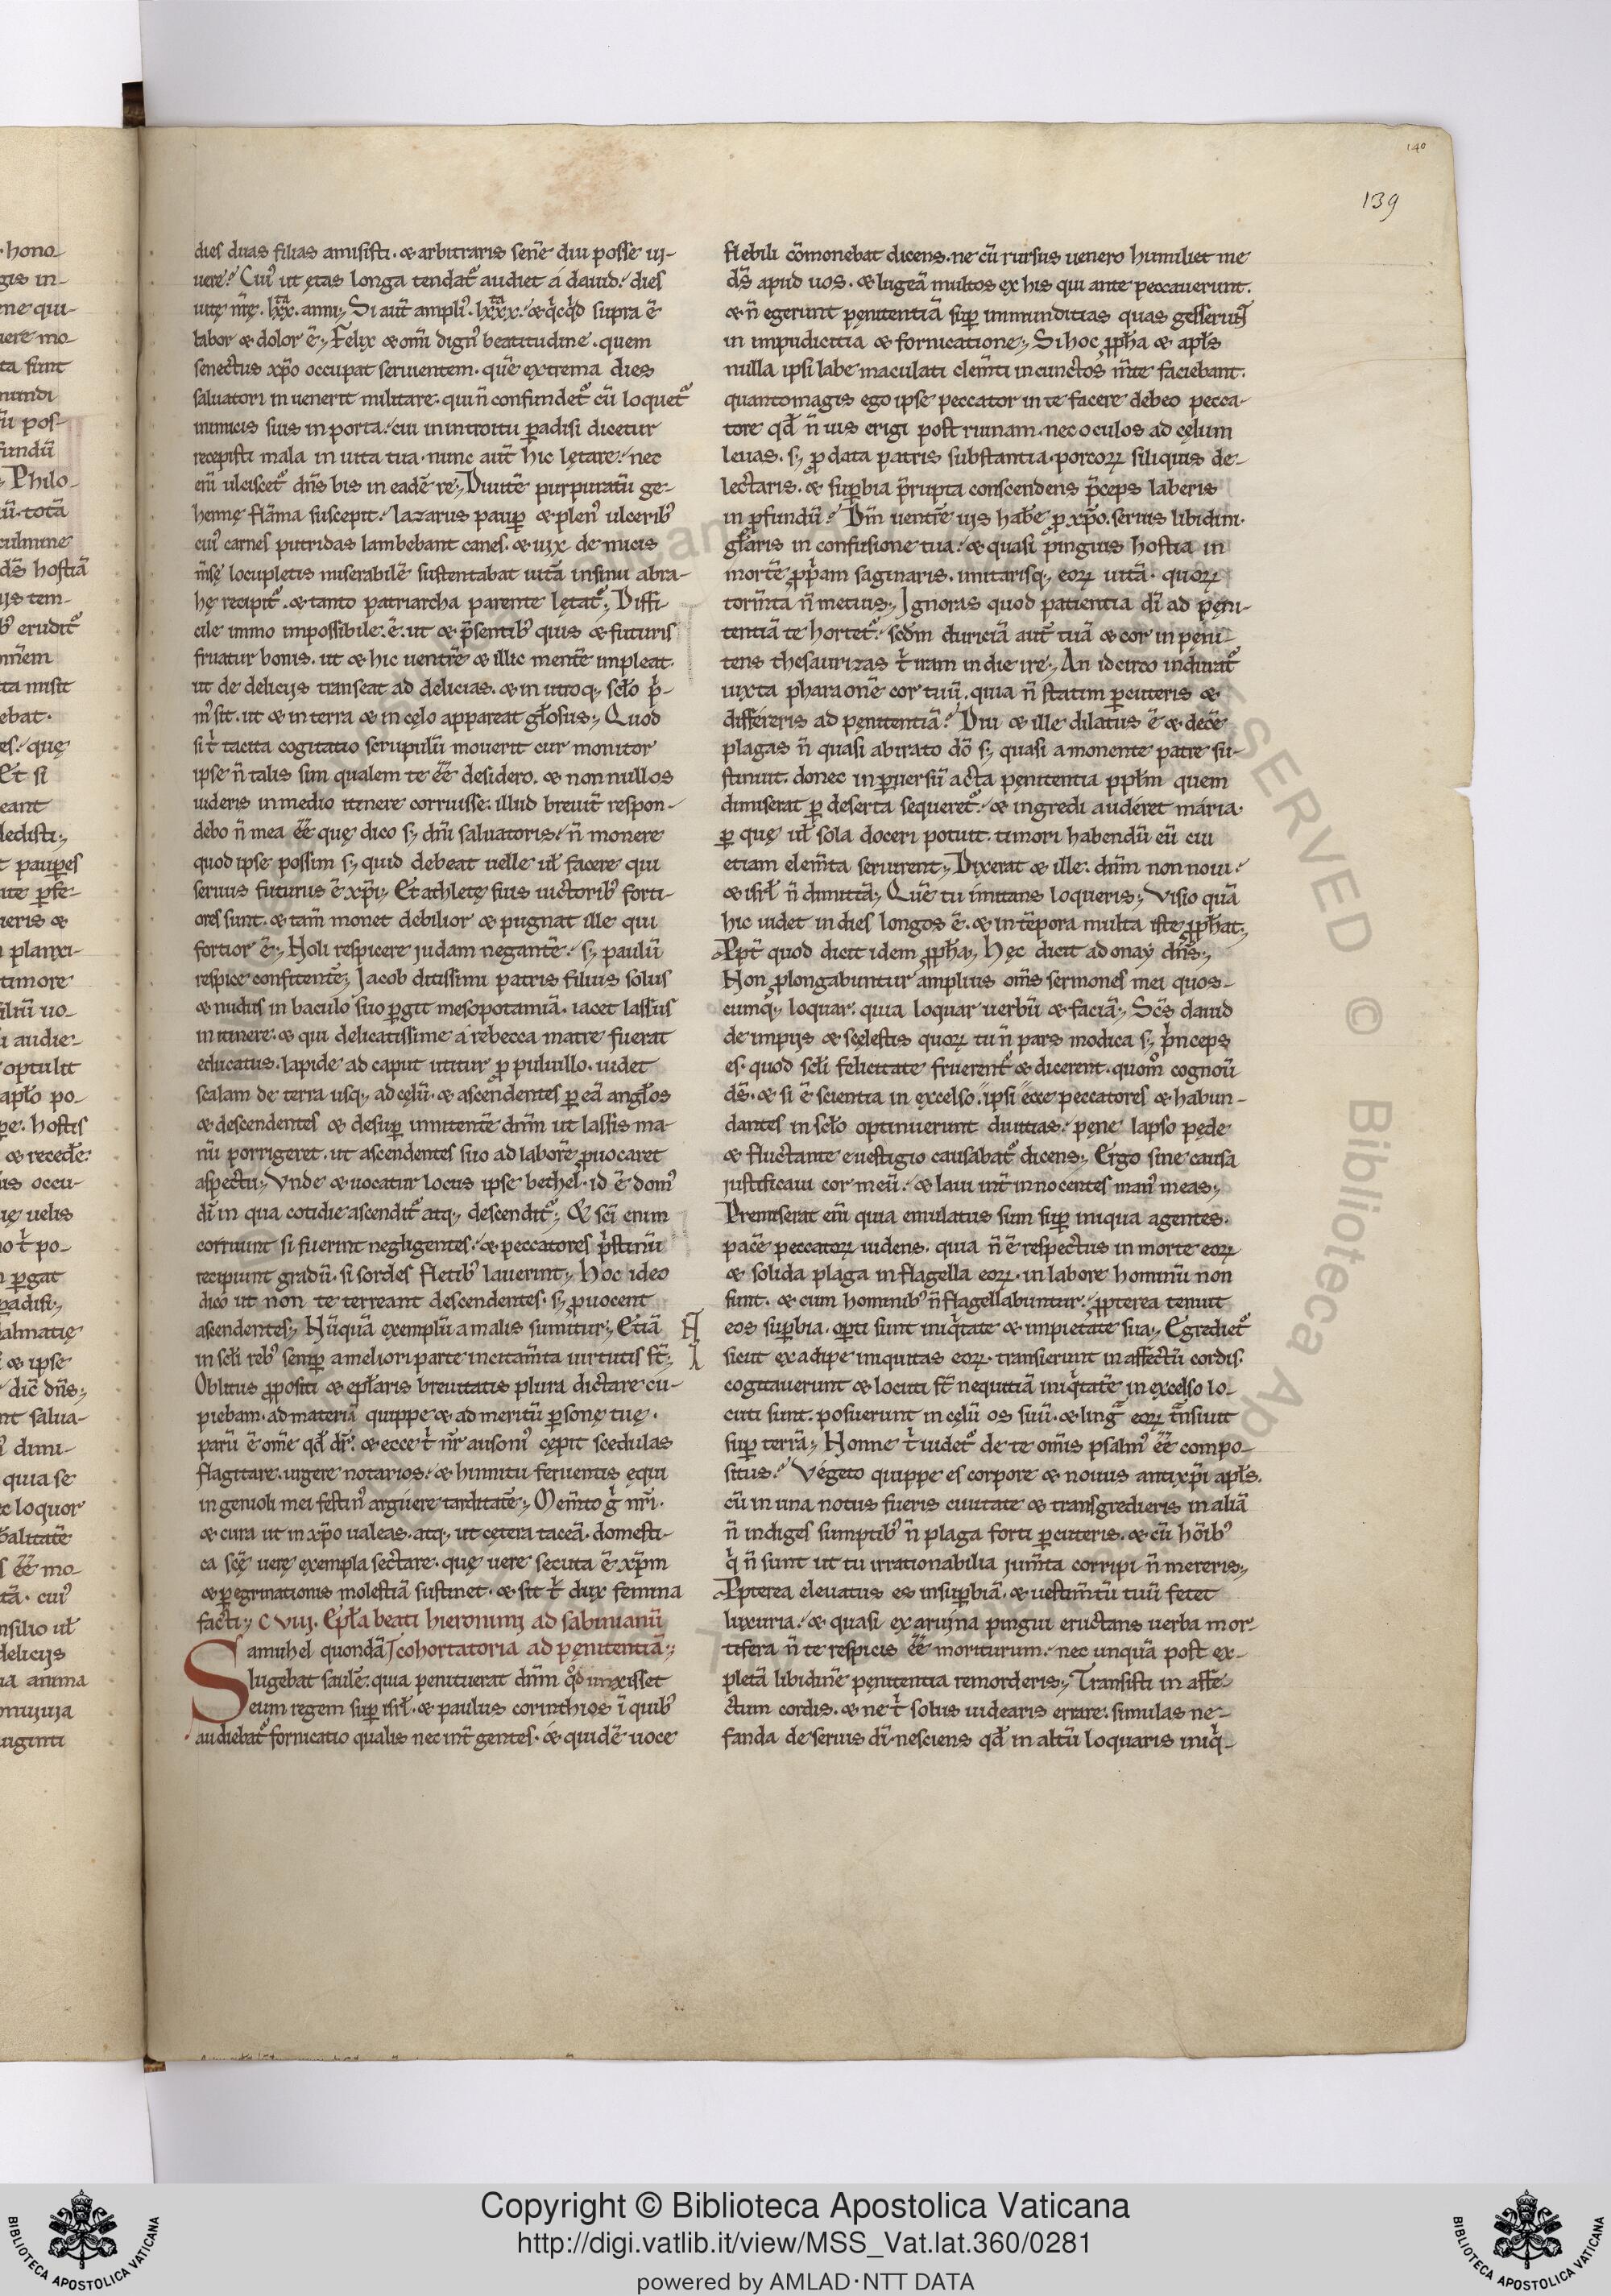 140
139
dies duas filias amisisti. & arbitraris sene̅ diu posse ui-
uere? Cui᾽ ut ętas longa tendat᷑ audiet á dauid. dies
uitę n̅rę. lxx. anni; Si aut̅ ampli᾽. lxxx. & q̇cq̇d supra e̅
labor & dolor e̅; Felix & om̅i dign᾽ beatitudine. quem
senectus xp̅o occupat seruientem. que̅ extrema dies
saluatori inuenerit militare. qui n̅ confundet᷑ cu̅ loquet᷑
inimicis suis in porta. cui in introitu ꝑadisi dicetur
recepisti mala in uita tua. nunc aut̅ hic lętare. nec
eni̅ ulciscet᷑ dn̅s bis in eade̅ re; Diuite̅ purpuratu̅ ge-
hennę fla̅ma suscepit. Lazarus pauꝑ & plen᾽ ulcerib᾽
cui᾽ carnes putridas lambebant canes. & uix de micis
m̅sę locupletis miserabile̅ sustentabat uita̅ in sinu abra-
hę recipit᷑. & tanto patriarcha parente lętat᷑; Diffi-
cile immo impossibile. e̅. ut & p̅sentib᾽ quis & futuris
fruatur bonis. ut & hic uentre̅ & illic mente̅ impleat.
ut de delicijs transeat ad delicias. & in utroq; sc̅lo p̍-
m᾽ sit. ut & in terra & in cęlo appareat gl̅osus; Quod
si t̍ tacita cogitatio scrupulu̅ mouerit cur monitor
ipse n̅ talis sim qualem te e̅e̅ desidero. & non nullos
uideris in medio itinere corruisse. illud breuit̅ respon-
debo n̅ mea e̅e̅ quę dico s; dn̅i saluatoris. n̅ monere
quod ipse possim s; quid debeat uelle ul̅ facere qui
seruus futurus e̅ xp̅i; Et athletę suis uictorib᾽ forti-
ores sunt. & tam̅ monet debilior & pugnat ille qui
fortior e̅; Noli respicere judam negante̅. s; paulu̅
respice confitente̅; Jacob ditissimi patris filius solus
& nudus in baculo suo ꝑgit mesopotamia̅. iacet lassus
in itinere. & qui delicatissime á rebecca matre fuerat
educatus. lapide ad caput utitur ꝓ puluillo. uidet
scalam de terra usq; ad cęlu̅. & ascendentes ꝑ ea̅ angl̅os
& descendentes & desuꝑ innitente̅ dn̅m ut lassis ma-
nu̅ porrigeret. ut ascendentes suo ad labore̅ ꝓuocaret
aspectu; Vnde & uocatur locus ipse bethel. id e̅ dom᾽
di̅ in qua cotidie ascendit᷑ atq; descendit᷑; & sc̅i enim
corruunt si fuerint negligentes. & peccatores p̍stinu̅
recipiunt gradu̅. si sordes fletib᾽ lauerint; Hoc ideo
dico ut non te terreant descendentes. s; ꝓuocent
ascendentes; Nu̅qua̅ exemplu̅ a malis sumitur; Etia̅
in sc̅li reb᾽ semꝑ a meliori parte incitam̅ta uirtutis s̅t;
Oblitus ꝓpositi & epl̅aris breuitatis plura dictare cu-
piebam. ad materia̅ quippe & ad meritu̅ ꝑsonę tuę.
paru̅ e̅ om̅e qd̅ dr̅. & ecce t̍ nr̅ auson᾽ cępit scedulas
flagitare. urgere notarios. & hinnitu feruentis ęqui
ingenioli mei festin᾽ arguere tarditate̅; Mem̅to g̍ nr̅i.
& cura ut in xp̅o ualeas. atq; ut cętera tacea̅. domesti-
ca sc̅ę uerę exempla sectare. quę uere secuta e̅ xp̅m
& ꝑegrinationis molestia̅ sustinet. & sit t̍ dux femina
facti; C VIII. Epl̅a beati hieronimi ad sabinianu̅
Samuhel quonda̅ cohortatoria ad pęnitentia̅;
lugebat saule̅. quia penituerat dn̅m qd̊ unxisset
eum regem suꝑ isrl̅. & paulus corinthios i̅ quib᾽
audiebat᷑ fornicatio qualis nec int̅ gentes. & quide̅ uoce
flebili co̅monebat dicens. ne cu̅ rursus uenero humiliet me
ds̅ apud uos. & lugea̅ multos ex his qui ante peccauerunt.
& n̅ egerunt pęnitentia̅ suꝑ immunditias quas gesserunt
in impudicitia & fornicatione; Si hoc ꝓph̅a & apl̅s
nulla ipsi labe maculati clem̅ti in cunctos m̅te faciebant.
quanto magis ego ipse peccator in te facere debeo pecca-
tore qd̅ n̅ uis erigi post ruinam. nec oculos ad cęlum
leuas. s; ꝓdata patris substantia. porcoꝝ siliquis de-
lectaris. & suꝑbia p̅rupta conscendens p̅ceps laberis
in ꝓfundu̅. Dm̅ uentre̅ uis hab̅e ꝓ xp̅o. seruis libidini.
gl̅aris in confusione tua. & quasi pinguis hostia in
morte̅ ꝓp̍am saginaris. imitarisq; eoꝝ uita̅. quoꝝ
torm̅ta n̅ metuis; Ignoras quod patientia di̅ ad pęni-
tentia̅ te hortet᷑. scd̅m duricia̅ aut̅ tua̅ & cor inpęni-
tens thesaurizas t̍ iram in die irę; An idcirco indurat᷑
iuxta pharaone̅ cor tuu̅. quia n̅ statim ꝑcuteris &
differeris ad pęnitentia̅? Diu & ille dilatus e̅ & dece̅
plagas n̅ quasi ab irato do̅ s; quasi a monente patre su-
stinuit. donec in ꝑuersu̅ acta pęnitentia ppl̅m quem
dimiserat ꝑ deserta sequeret᷑. & ingredi auderet mária.
ꝑ quę ul̅ sola doceri potuit. timori habendu̅ eu̅ cui
etiam elem̅ta seruirent; Dixerat & ille. dn̅m non noui.
& isrl̅ n̅ dimitta̅; Que̅ tu imitans loqueris; Visio qua̅
hic uidet in dies longos e̅. & in te̅pora multa iste ꝓph̅at;
Ppt̅ quod dicit idem ꝓph̅a; Hęc dicit adonay dn̅s;
Non ꝓlongabuntur amplius om̅s sermones mei quos-
cumq; loquar. quia loquar uerbu̅ & facia̅; Sc̅s dauid
de impijs & scęlestis quoꝝ tu n̅ pars modica s; p̍nceps
es. quod sc̅li felicitate fruerent᷑ & dicerent. quom̊ cognou̅
ds̅. & si e̅ scientia in excelso. ipsi ecce peccatores & habun-
dantes in sc̅lo optinuerunt diuitias. pęne lapso pęde
& fluctante euestigio causabat᷑ dicens; Ergo sine causa
justificaui cor meu̅. & laui int̅ innocentes man᾽ meas;
Premiserat eni̅ quia emulatus sum suꝑ iniqua agentes.
pace̅ peccatoꝝ uidens. quia n̅ e̅ respectus in morte eoꝝ
& solida plaga in flagella eoꝝ. in labore hominu̅ non
sunt. & cum hominib᾽ n̅ flagellabuntur. ꝓpterea tenuit
eos suꝑbia. oꝑti sunt iniq̍tate & impietate sua; Egrediet᷑
sicut ex adipe iniquitas eoꝝ. transierunt in affectu̅ cordis.
cogitauerunt & locuti s̅t nequitia̅ iniq̍tate̅ in excelso lo-
cuti sunt. posuerunt in cęlu̅ os suu̅. & ling̅ eoꝝ t̅nsiuit
suꝑ terra̅; Nonne t̍ uidet᷑ de te om̅is psalm᾽ e̅e̅ compo-
situs? Végeto quippe es corpore & nouus antixp̅i apl̅s.
cu̅ in una notus fueris ciuitate & transgredieris in alia̅
n̅ indiges sumptib᾽ n̅ plaga forti ꝑcuteris. & cu̅ ho̅ib᾽
q̍ n̅ sunt ut tu irrationabilia jum̅ta corripi n̅ mereris;
Ppterea eleuatus es in suꝑbia̅. & uestim̅tu̅ tuu̅ fetet
luxuria. & quasi ex aruina pingui eructans uerba mor-
tifera n̅ te respicis e̅e̅ moriturum. nec unqua̅ post ex-
pleta̅ libidine̅ pęnitentia remorderis; Transisti in affe-
ctum cordis. & ne t̍ solus uidearis errare. simulas ne-
fanda de seruis di̅. nesciens qd̅ in altu̅ loquaris iniq̍-
Copyright © Biblioteca Apostolica Vaticana
http://digi.vatlib.it/view/MSS_Vat.lat.360/0281
powered by AMLAD·NTT DATA